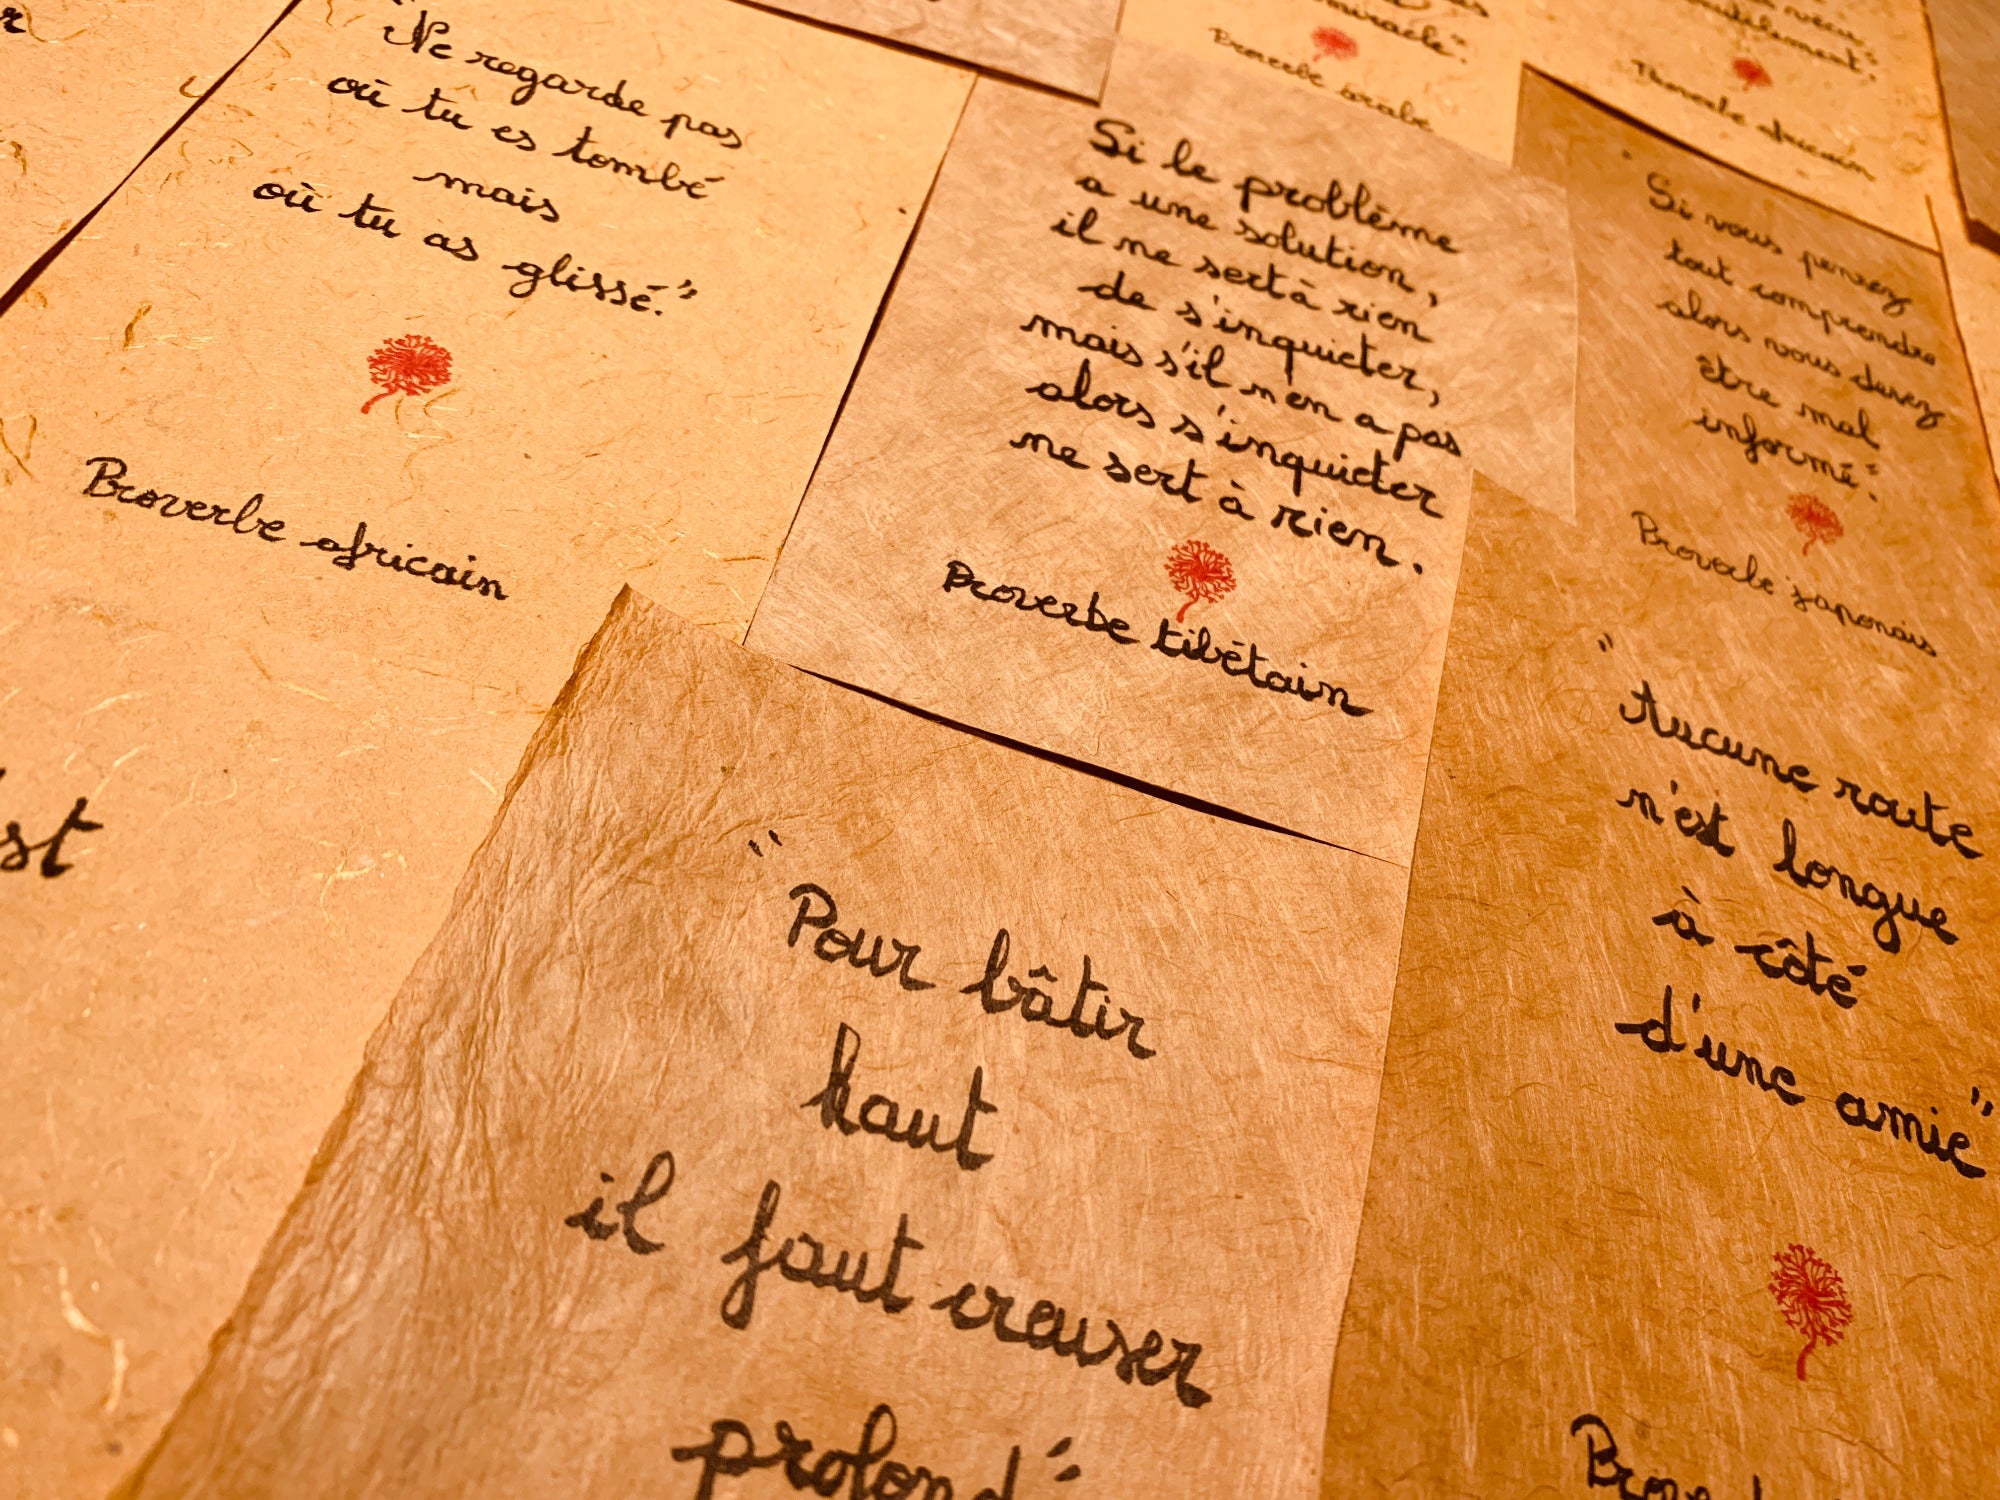 "Ne regarde pas
où tu es tombé
mais
où tu as glissé."
Proverbe africain
st
miracle."
Proverbe arabe
Proverbe africain
Si le problème
a une solution,
il ne sert à rien
de s'inquieter,
mais s'il n'en a pas
alors s'inquieter
ne sert à rien.
Proverbe tibétain
"Si vous pensez
tout comprendre
alors vous devez
être mal
informé".
Proverbe japonais
"Pour bâtir
haut
il faut creuser
profond"
"Aucune route
n'est longue
à côté
d'une amie"